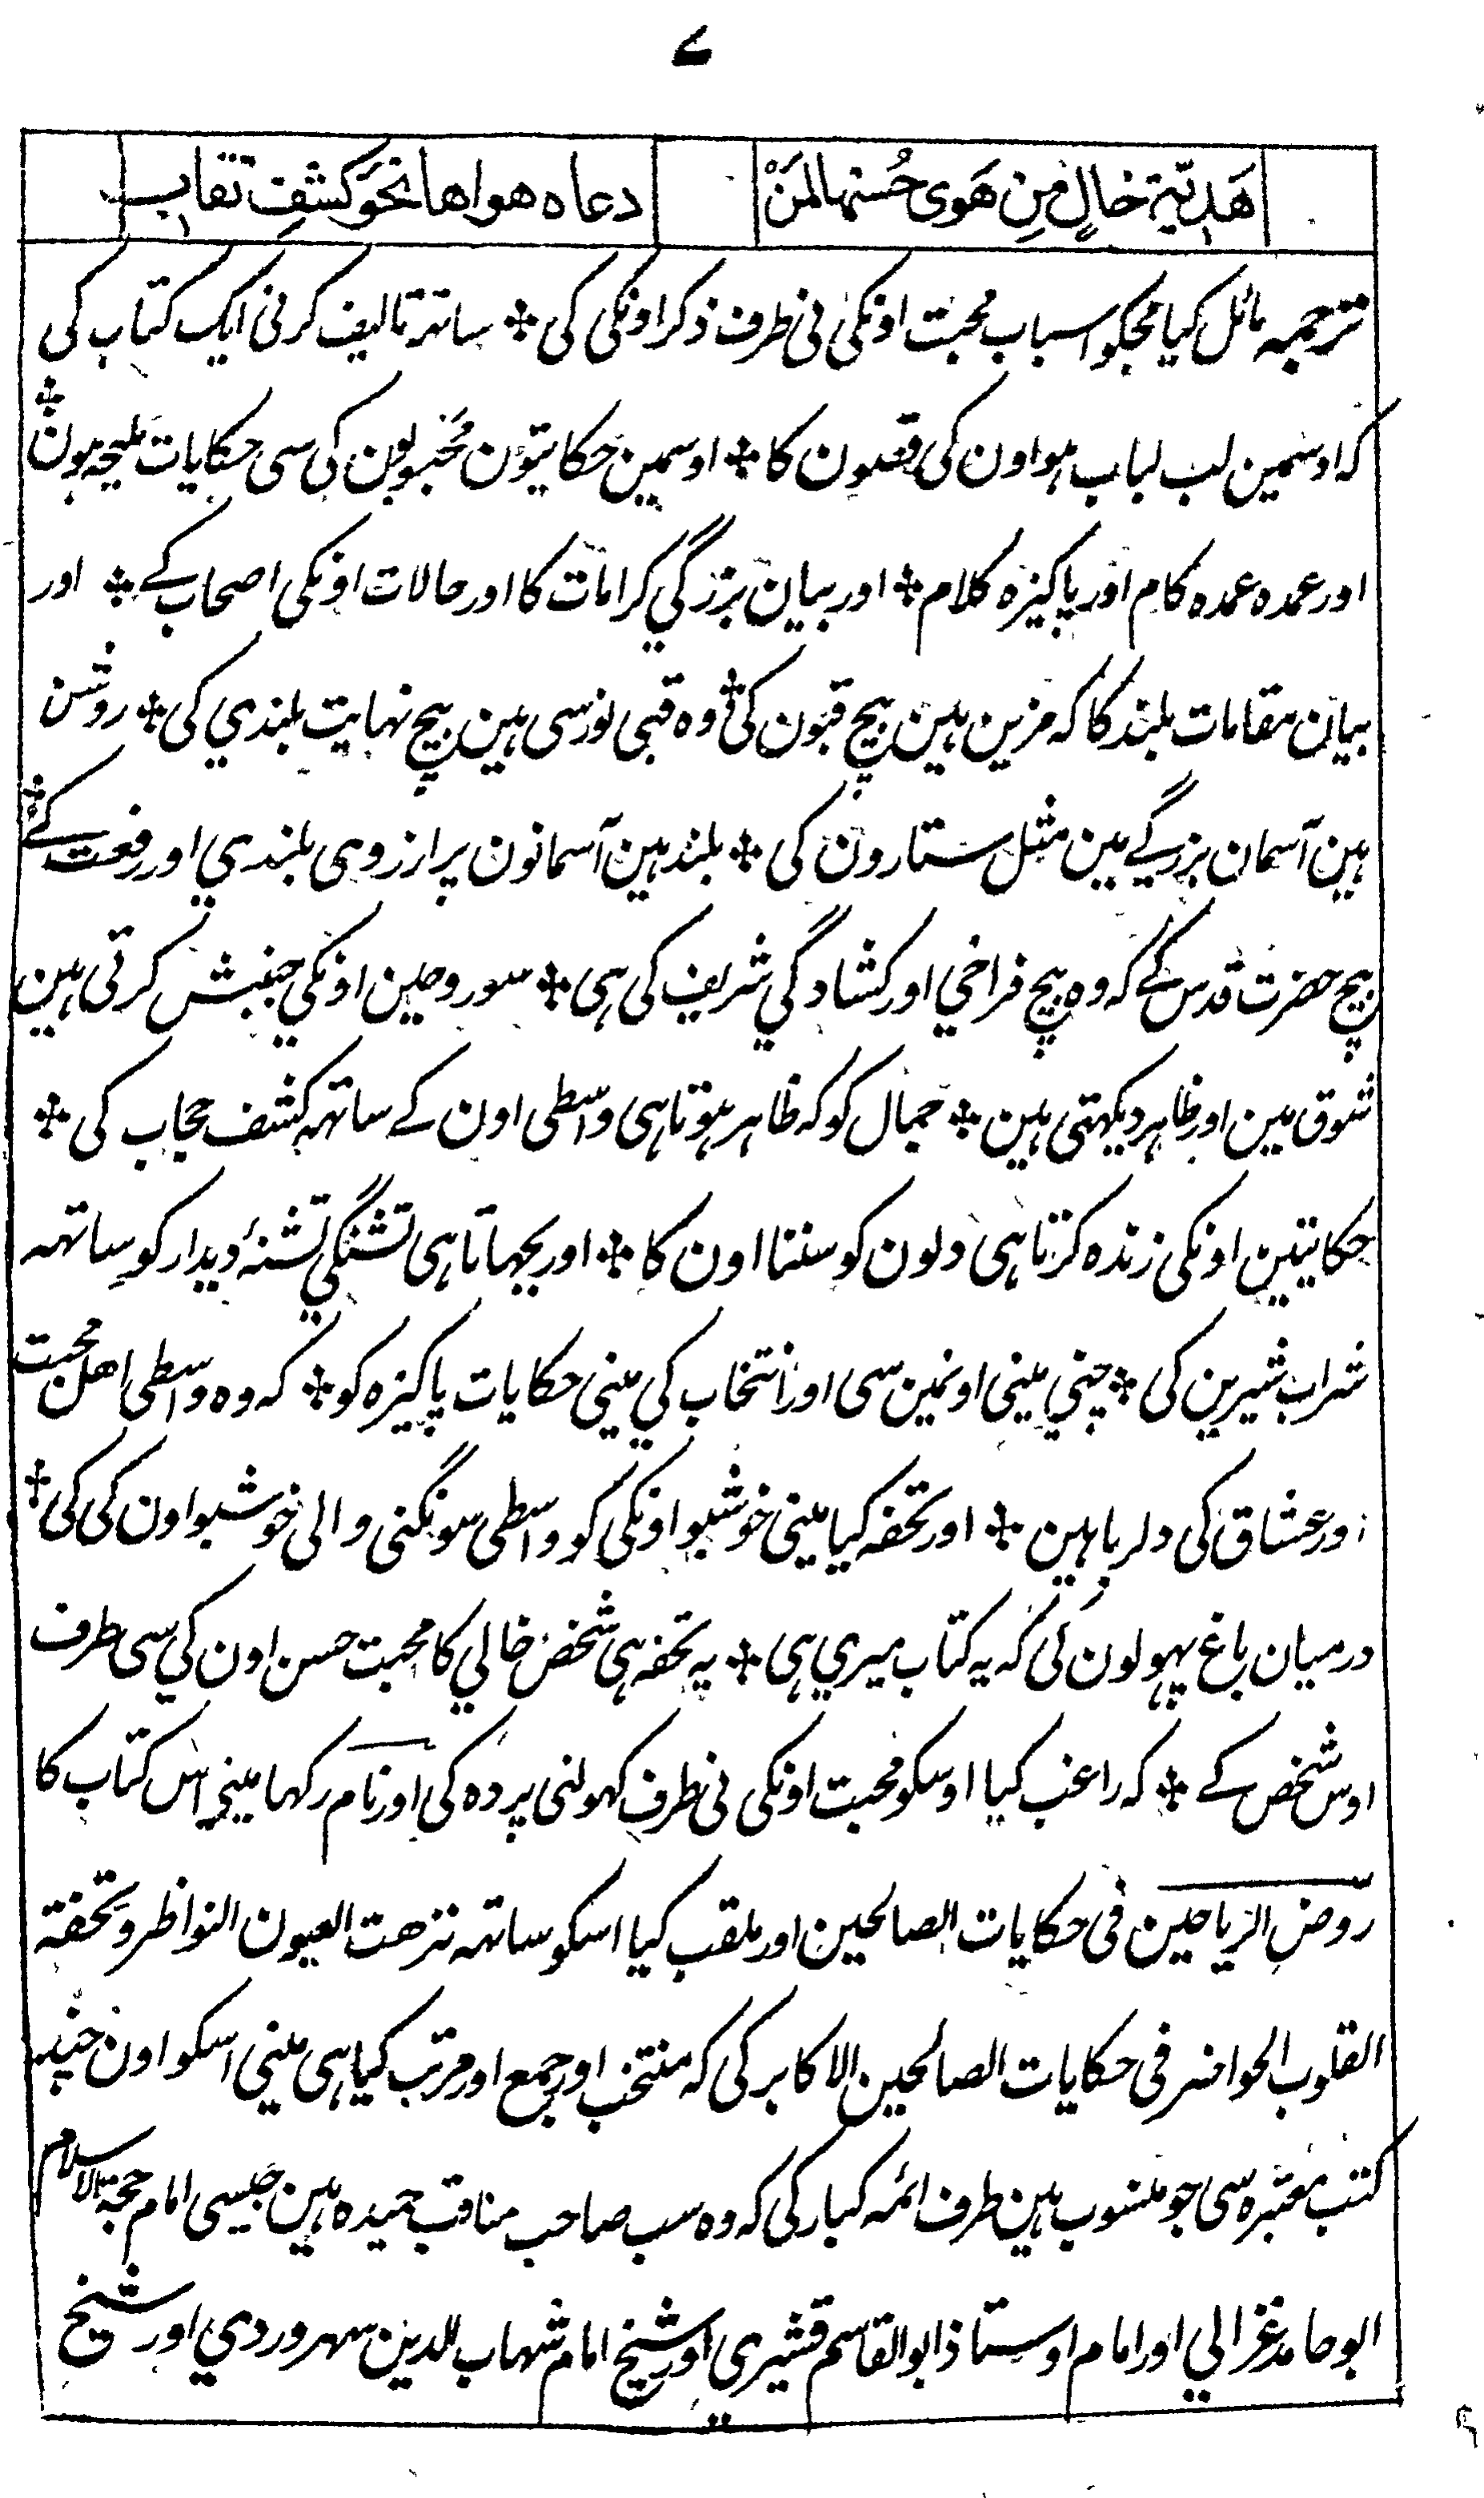 ۷
هَدِيّة خالٍ مِن هَوى حُسنها لمَنْ دعاه هواها نحوَ كشفِ نقاب
ترجمہ مائل کیا مجکو اسباب محبت اونکی نی طرف ذکر اونکی کی ٭ ساتہ تالیف کرنی ایک کتاب کی
کہ اوسمین لب لباب ہو اون کی قصون کا ٭ اوسمین حکایتون محبوبون کی سی حکایات ملیحہ ہون ٭
اور عمدہ عمدہ کام اور پاکیزہ کلام ٭ اور بیان بزرگي کرامات کا اور حالات اونکی اصحاب کے ٭ اور
بیان مقامات بلند کا کہ مزین ہین بیچ قبون کی ٭ وہ قبی نور سی ہین بیچ نہایت بلندي کی ٭ روشن
ہین آسمان بزرگے مین مثل ستارون کی ٭ بلند ہین آسمانون پر از روی بلندي اور رفعت کے ٭
بیچ حضرت قدس کے کہ وہ بیچ فراخي اور کشادگي شریف کی ہی ٭ سو روحین اونکي جنبش کرتی ہین
شوق مین اور ظاہر دیکہتی ہین ٭ جمال کو کہ ظاہر ہوتا ہی واسطی اون کے ساتہہ کشف حجاب کی ٭
حکایتین اونکی زندہ کرتا ہی دلون کو سننا اون کا ٭ اور بجہاتا ہی تشنگي تشنۂ دیدار کو ساتہہ
شراب شیرین کی ٭ چني میني اونمین سی اور انتخاب کي میني حکایات پاکیزہ کو ٭ کہ وہ واسطی اهل محبت
اور عشاق کی دلربا ہین ٭ اور تحفہ کیا میني خوشبو اونکی کو واسطی سونگنی والی خوشبو اون کی کی ٭
درمیان باغ پہولون کی کہ یہ کتاب میري ہی ٭ یہ تحفہ ہی شخص خالي کا محبت حسن اون کي سی طرف
اوس شخص کے ٭ کہ راغب کیا اوسکو محبت اونکی نی طرف کہولنی پردہ کی اور نام رکہا میني اس کتاب کا
روض الریاحین فی حکایات الصالحین اور ملقب کیا اسکو ساتہہ نزهت العیون النواظر و تحفة
القلوب الحواضر فی حکایات الصالحین الاکابر کی کہ منتخب اور جمع اور مرتب کیا ہی میني اسکو اون چند
کتب معتبرہ سی جو منسوب ہین طرف ائمہ کبار کی کہ وہ سب صاحب مناقب حمیدہ ہین جیسی امام حجة الاسلام
ابو حامد غزالي اور امام اوستاذ ابو القاسم قشیري اور شیخ امام شہاب الدین سہروردي اور شیخ